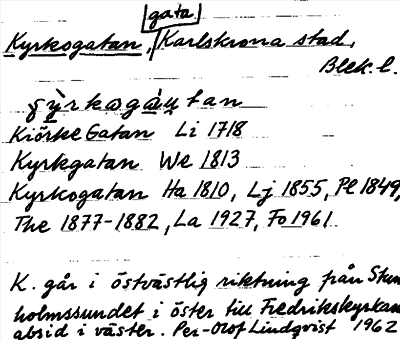 gata
Kyrkogatan, Karlskrona stad,
Blek. l.
Kiörke Gatan Li 1718
Kyrkgatan We 1813
Kyrkogatan Ha 1810, Lj 1855, Pl 1849,
The 1877-1882, La 1927, Fo 1961.
K. går i östvästlig riktning från Stum
holmssundet i öster till Fredrikskyrkan
absid i väster. Per-Olof Lindqvist 1962